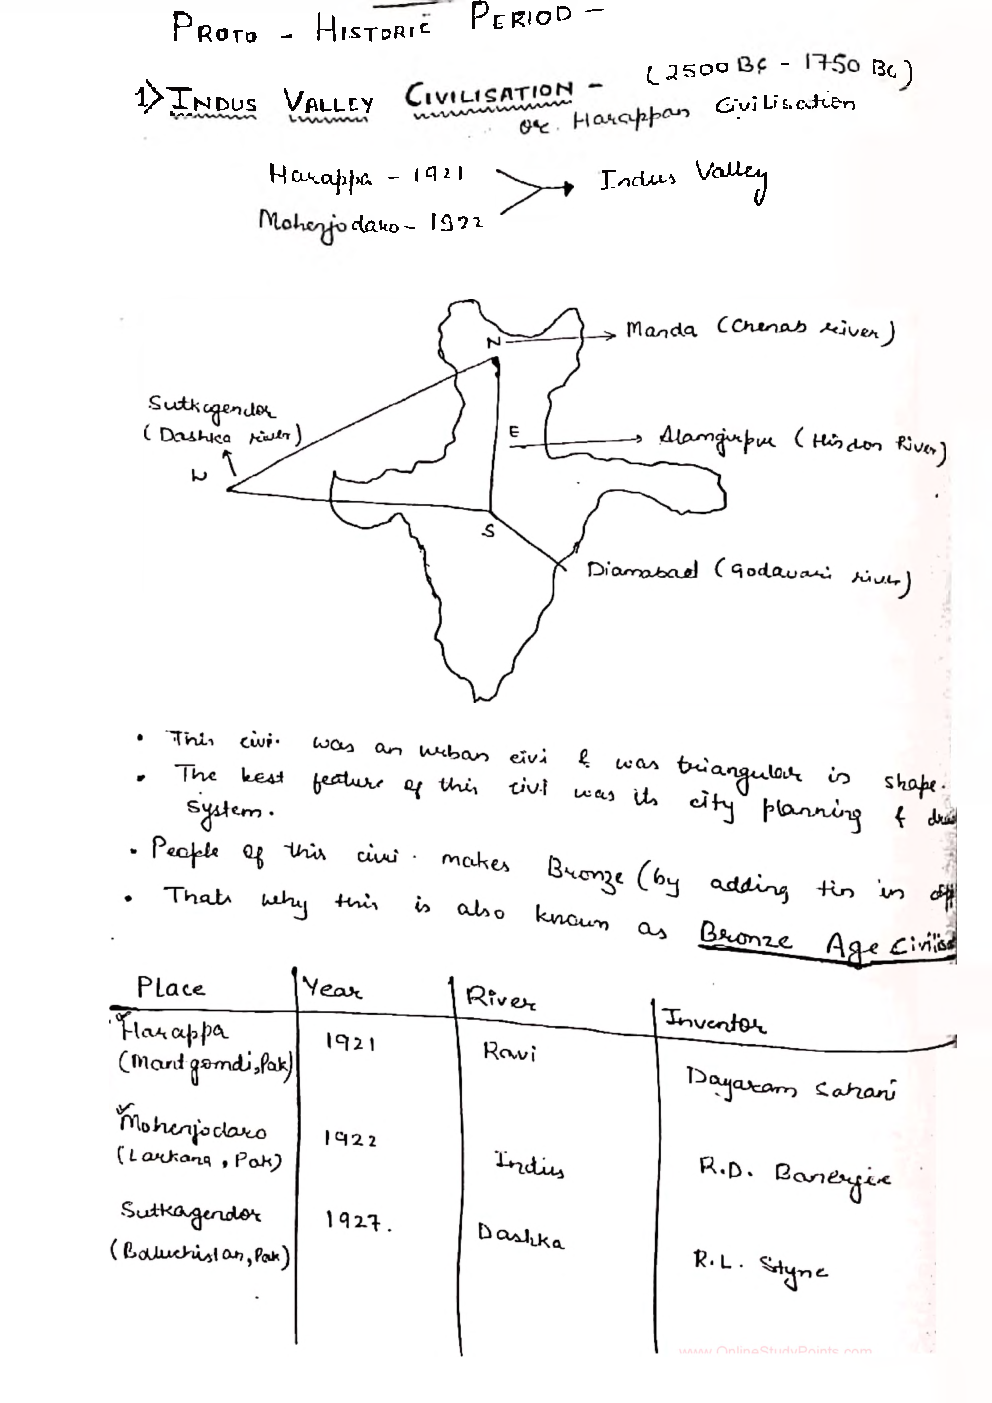 PROTO - HISTORIC PERIOD -
1) INDUS VALLEY CIVILISATION - (2500 BC - 1750 BC)
or Harappan Civilisation
Harappa - 1921
Indus Valley
Mohenjodaro - 1922
N
Manda (Chenab river)
Sutkagendor
(Dashka river)
E
Alamgirpur (Hindon River)
W
S
Diamabad (Godavari river)
• This civi. was an urban civi & was triangular in shape.
• The best feature of this civi was its city planning &
system.
• People of this civi. makes Bronze (by adding tin in
• Thats why this is also known as Bronze Age
Place Year River Inventor
Harappa 1921 Ravi Dayaram Sahani
(Mantgomdi, Pak)
Mohenjodaro 1922 Indus R.D. Banerjee
(Larkana, Pak)
Sutkagendor 1927. Dashka R.L. Styne
(Baluchistan, Pak)
www.OnlineStudyPoints.com